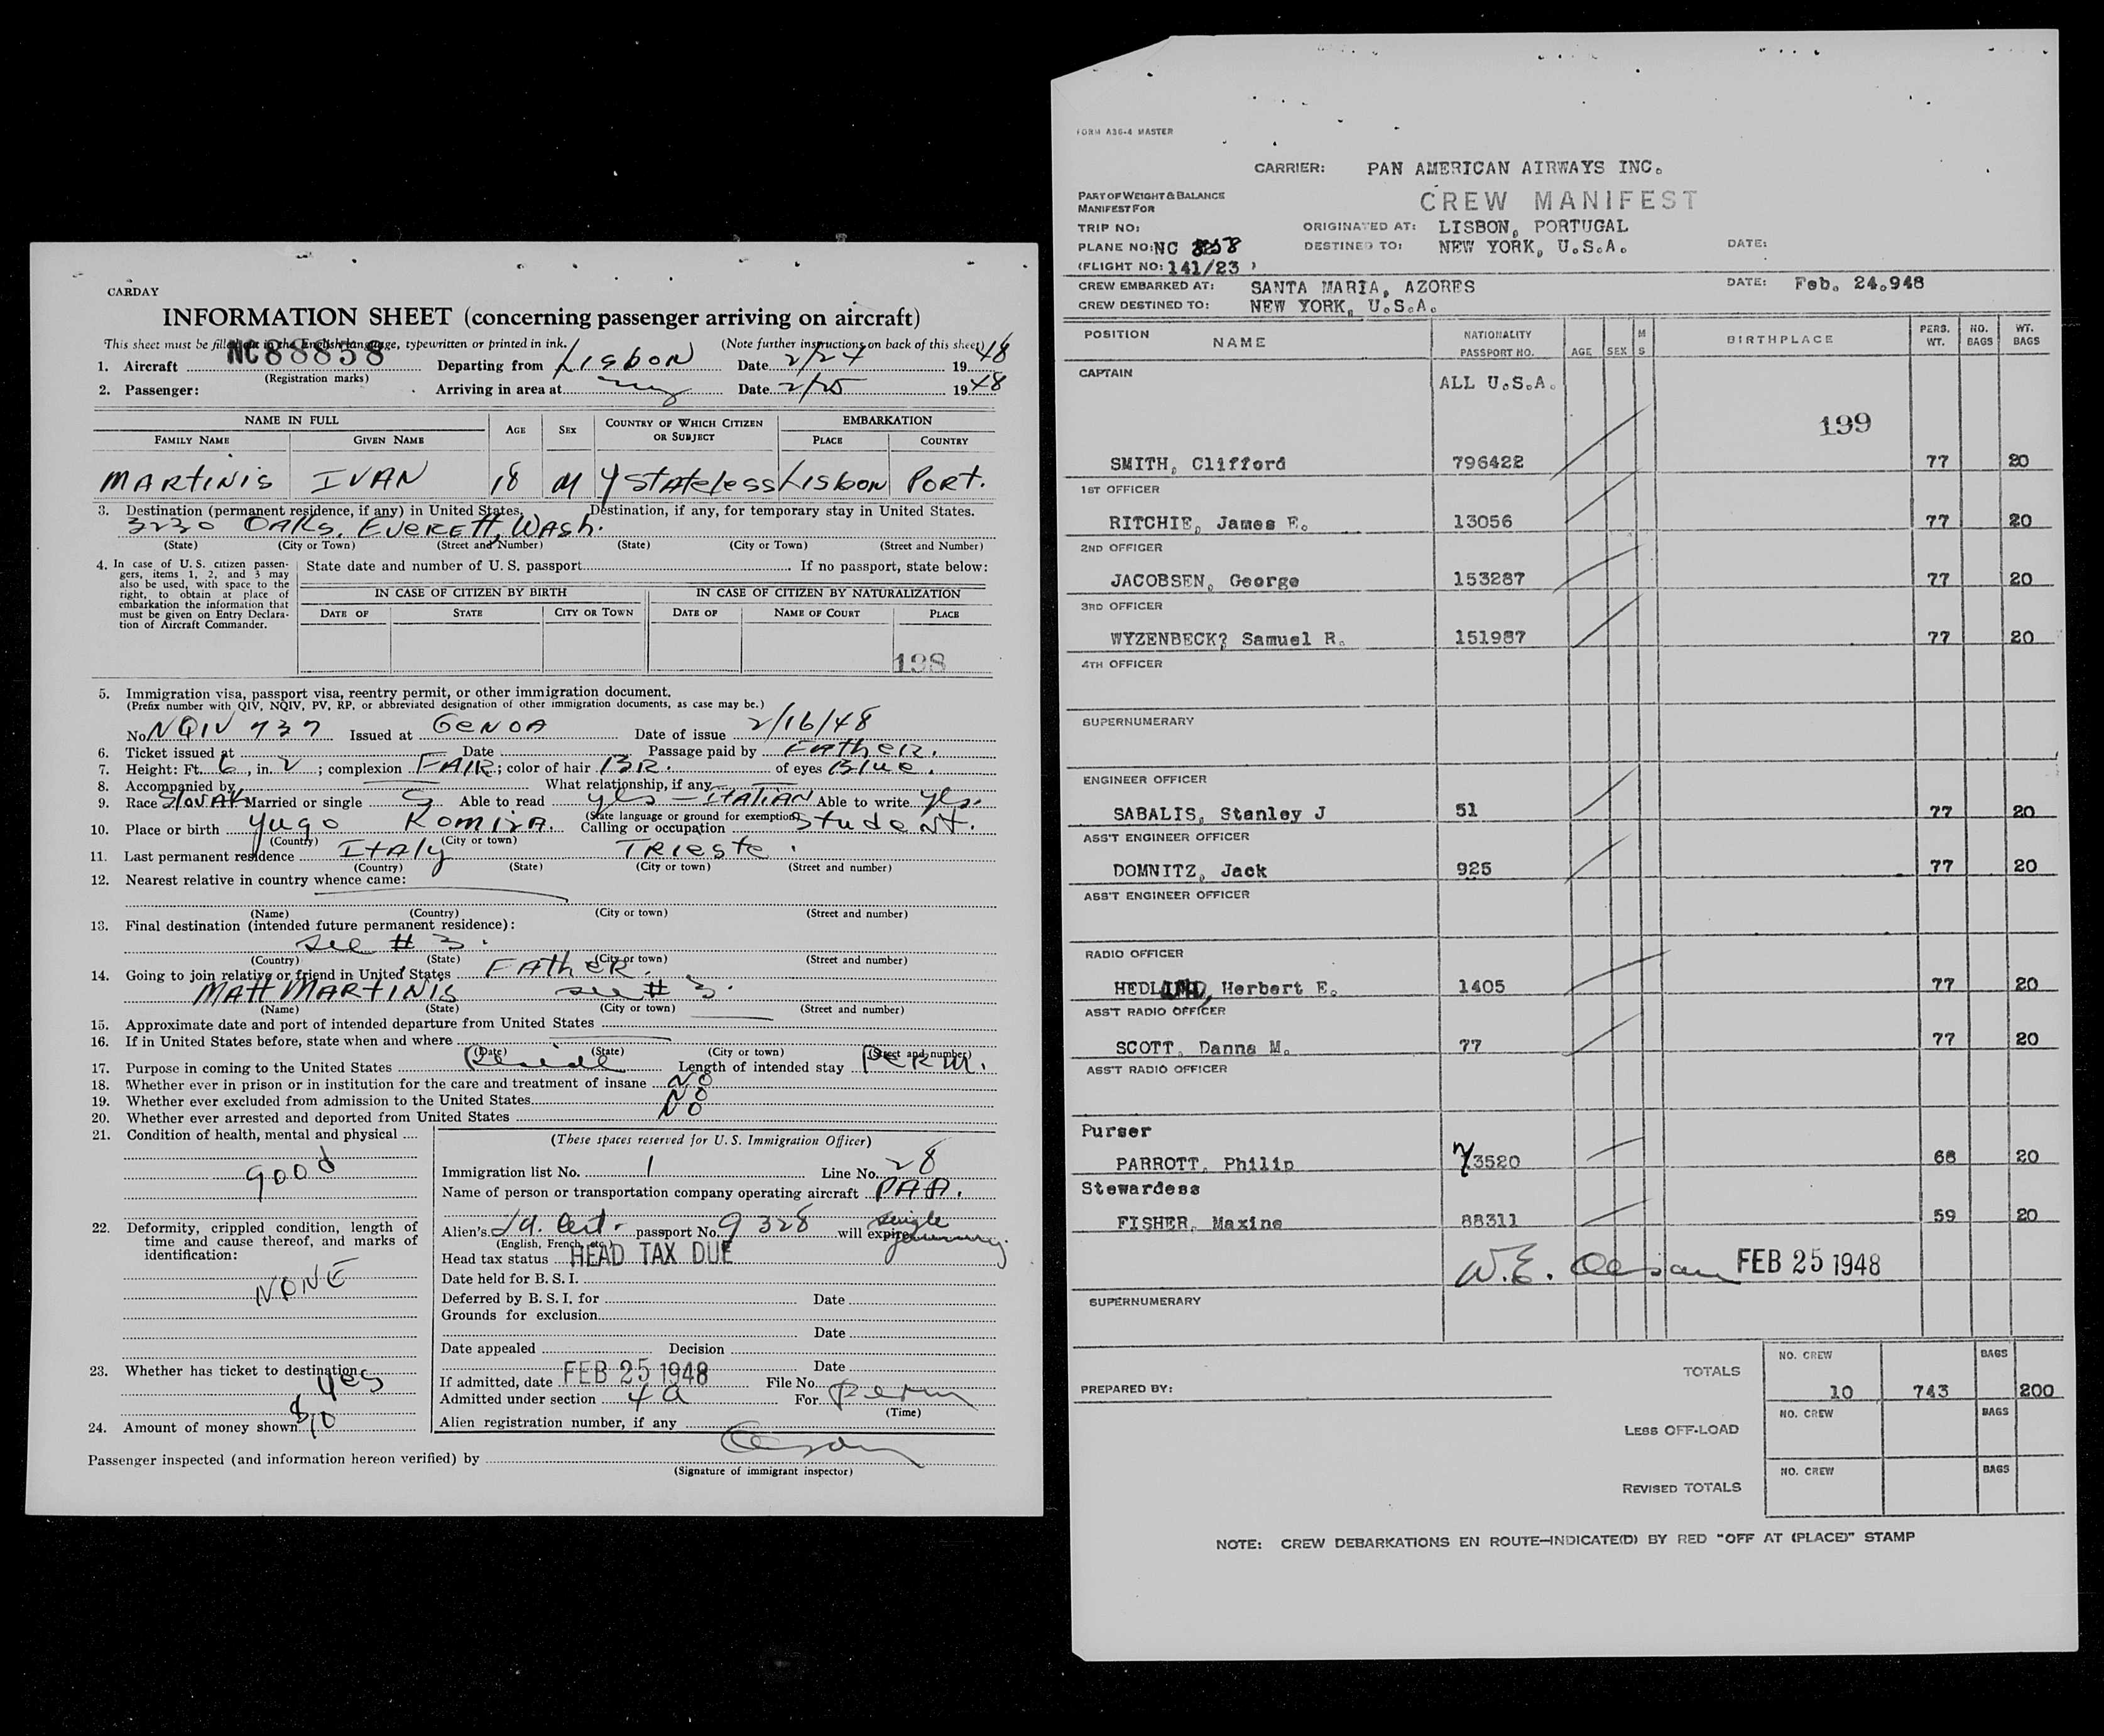 CARDAY
INFORMATION SHEET (concerning passenger arriving on aircraft)
This sheet must be filled out in the English language, typewritten or printed in ink. (Note further instructions on back of this sheet)
1. Aircraft NC88858 Departing from Lisbon Date 2/24 1948
(Registration marks)
2. Passenger: Arriving in area at ny Date 2/25 1948
NAME IN FULL AGE SEX COUNTRY OF WHICH CITIZEN OR SUBJECT EMBARKATION
FAMILY NAME GIVEN NAME PLACE COUNTRY
MARTINIS IVAN 18 M Y Stateless Lisbon Port.
3. Destination (permanent residence, if any) in United States. Destination, if any, for temporary stay in United States.
3230 Oaks, Everett, Wash.
(State) (City or Town) (Street and Number) (State) (City or Town) (Street and Number)
4. In case of U. S. citizen passengers, items 1, 2, and 3 may also be used, with space to the right, to obtain at place of embarkation the information that must be given on Entry Declaration of Aircraft Commander.
State date and number of U. S. passport If no passport, state below:
IN CASE OF CITIZEN BY BIRTH IN CASE OF CITIZEN BY NATURALIZATION
DATE OF STATE CITY OR TOWN DATE OF NAME OF COURT PLACE
198
5. Immigration visa, passport visa, reentry permit, or other immigration document.
(Prefix number with QIV, NQIV, PV, RP, or abbreviated designation of other immigration documents, as case may be.)
No. NQIV 737 Issued at Genoa Date of issue 2/16/48
6. Ticket issued at Date Passage paid by Father.
7. Height: Ft. 6, in. 2; complexion FAIR; color of hair BR. of eyes Blue.
8. Accompanied by What relationship, if any
9. Race Slovak Married or single S Able to read yes - Italian Able to write yes.
(State language or ground for exemption)
10. Place or birth Yugo Komiza. Calling or occupation Student.
(Country) (City or town)
11. Last permanent residence Italy Trieste.
(Country) (State) (City or town) (Street and number)
12. Nearest relative in country whence came:
(Name) (Country) (City or town) (Street and number)
13. Final destination (intended future permanent residence):
see # 3.
(Country) (State) (City or town) (Street and number)
14. Going to join relative or friend in United States Father.
Matt Martinis see # 3.
(Name) (State) (City or town) (Street and number)
15. Approximate date and port of intended departure from United States
16. If in United States before, state when and where
(Date) (State) (City or town) (Street and number)
17. Purpose in coming to the United States Reside Length of intended stay PERM.
18. Whether ever in prison or in institution for the care and treatment of insane NO
19. Whether ever excluded from admission to the United States NO
20. Whether ever arrested and deported from United States NO
21. Condition of health, mental and physical
good
22. Deformity, crippled condition, length of time and cause thereof, and marks of identification:
NONE
23. Whether has ticket to destination
yes
24. Amount of money shown $10
(These spaces reserved for U. S. Immigration Officer)
Immigration list No. 1 Line No. 28
Name of person or transportation company operating aircraft PAA.
Alien's Id. Cert. passport No. 9328 will expire single journey.
(English, French, etc.)
Head tax status HEAD TAX DUE
Date held for B. S. I.
Deferred by B. S. I. for Date
Grounds for exclusion
Date
Date appealed Decision
Date
If admitted, date FEB 25 1948 File No.
Admitted under section 4 a For Perm
(Time)
Alien registration number, if any
Passenger inspected (and information hereon verified) by
(Signature of immigrant inspector)
FORM A36-4 MASTER
CARRIER: PAN AMERICAN AIRWAYS INC.
PART OF WEIGHT & BALANCE
MANIFEST FOR
CREW MANIFEST
TRIP NO: ORIGINATED AT: LISBON, PORTUGAL
PLANE NO: NC DESTINED TO: NEW YORK, U.S.A. DATE:
(FLIGHT NO: 141/23 )
CREW EMBARKED AT: SANTA MARIA, AZORES DATE: Feb. 24.948
CREW DESTINED TO: NEW YORK, U.S.A.
POSITION NAME NATIONALITY PASSPORT NO. AGE SEX M S BIRTHPLACE PERS. WT. NO. BAGS WT. BAGS
CAPTAIN ALL U.S.A.
199
SMITH, Clifford 796422 77 20
1ST OFFICER
RITCHIE, James E. 13056 77 20
2ND OFFICER
JACOBSEN, George 153287 77 20
3RD OFFICER
WYZENBECK? Samuel R. 151987 77 20
4TH OFFICER
SUPERNUMERARY
ENGINEER OFFICER
SABALIS, Stanley J 51 77 20
ASS'T ENGINEER OFFICER
DOMNITZ, Jack 925 77 20
ASS'T ENGINEER OFFICER
RADIO OFFICER
HEDLUND, Herbert E. 1405 77 20
ASS'T RADIO OFFICER
SCOTT, Danna M. 77 77 20
ASS'T RADIO OFFICER
Purser
PARROTT, Philip 73520 68 20
Stewardess
FISHER, Maxine 88311 59 20
W.E. FEB 25 1948
SUPERNUMERARY
TOTALS NO. CREW BAGS
10 743 200
PREPARED BY:
LESS OFF-LOAD NO. CREW BAGS
REVISED TOTALS NO. CREW BAGS
NOTE: CREW DEBARKATIONS EN ROUTE—INDICATE(D) BY RED "OFF AT (PLACE)" STAMP